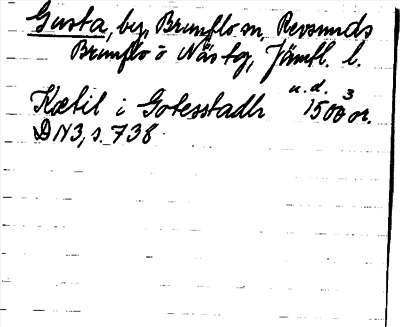 Gusta, by, Brunflo sn, Revsunds
Brunflo o Näs tg, Jämtl. l.
Kætil i Gotesstadh u.d. 1500 3 or.
DN3, s. 738